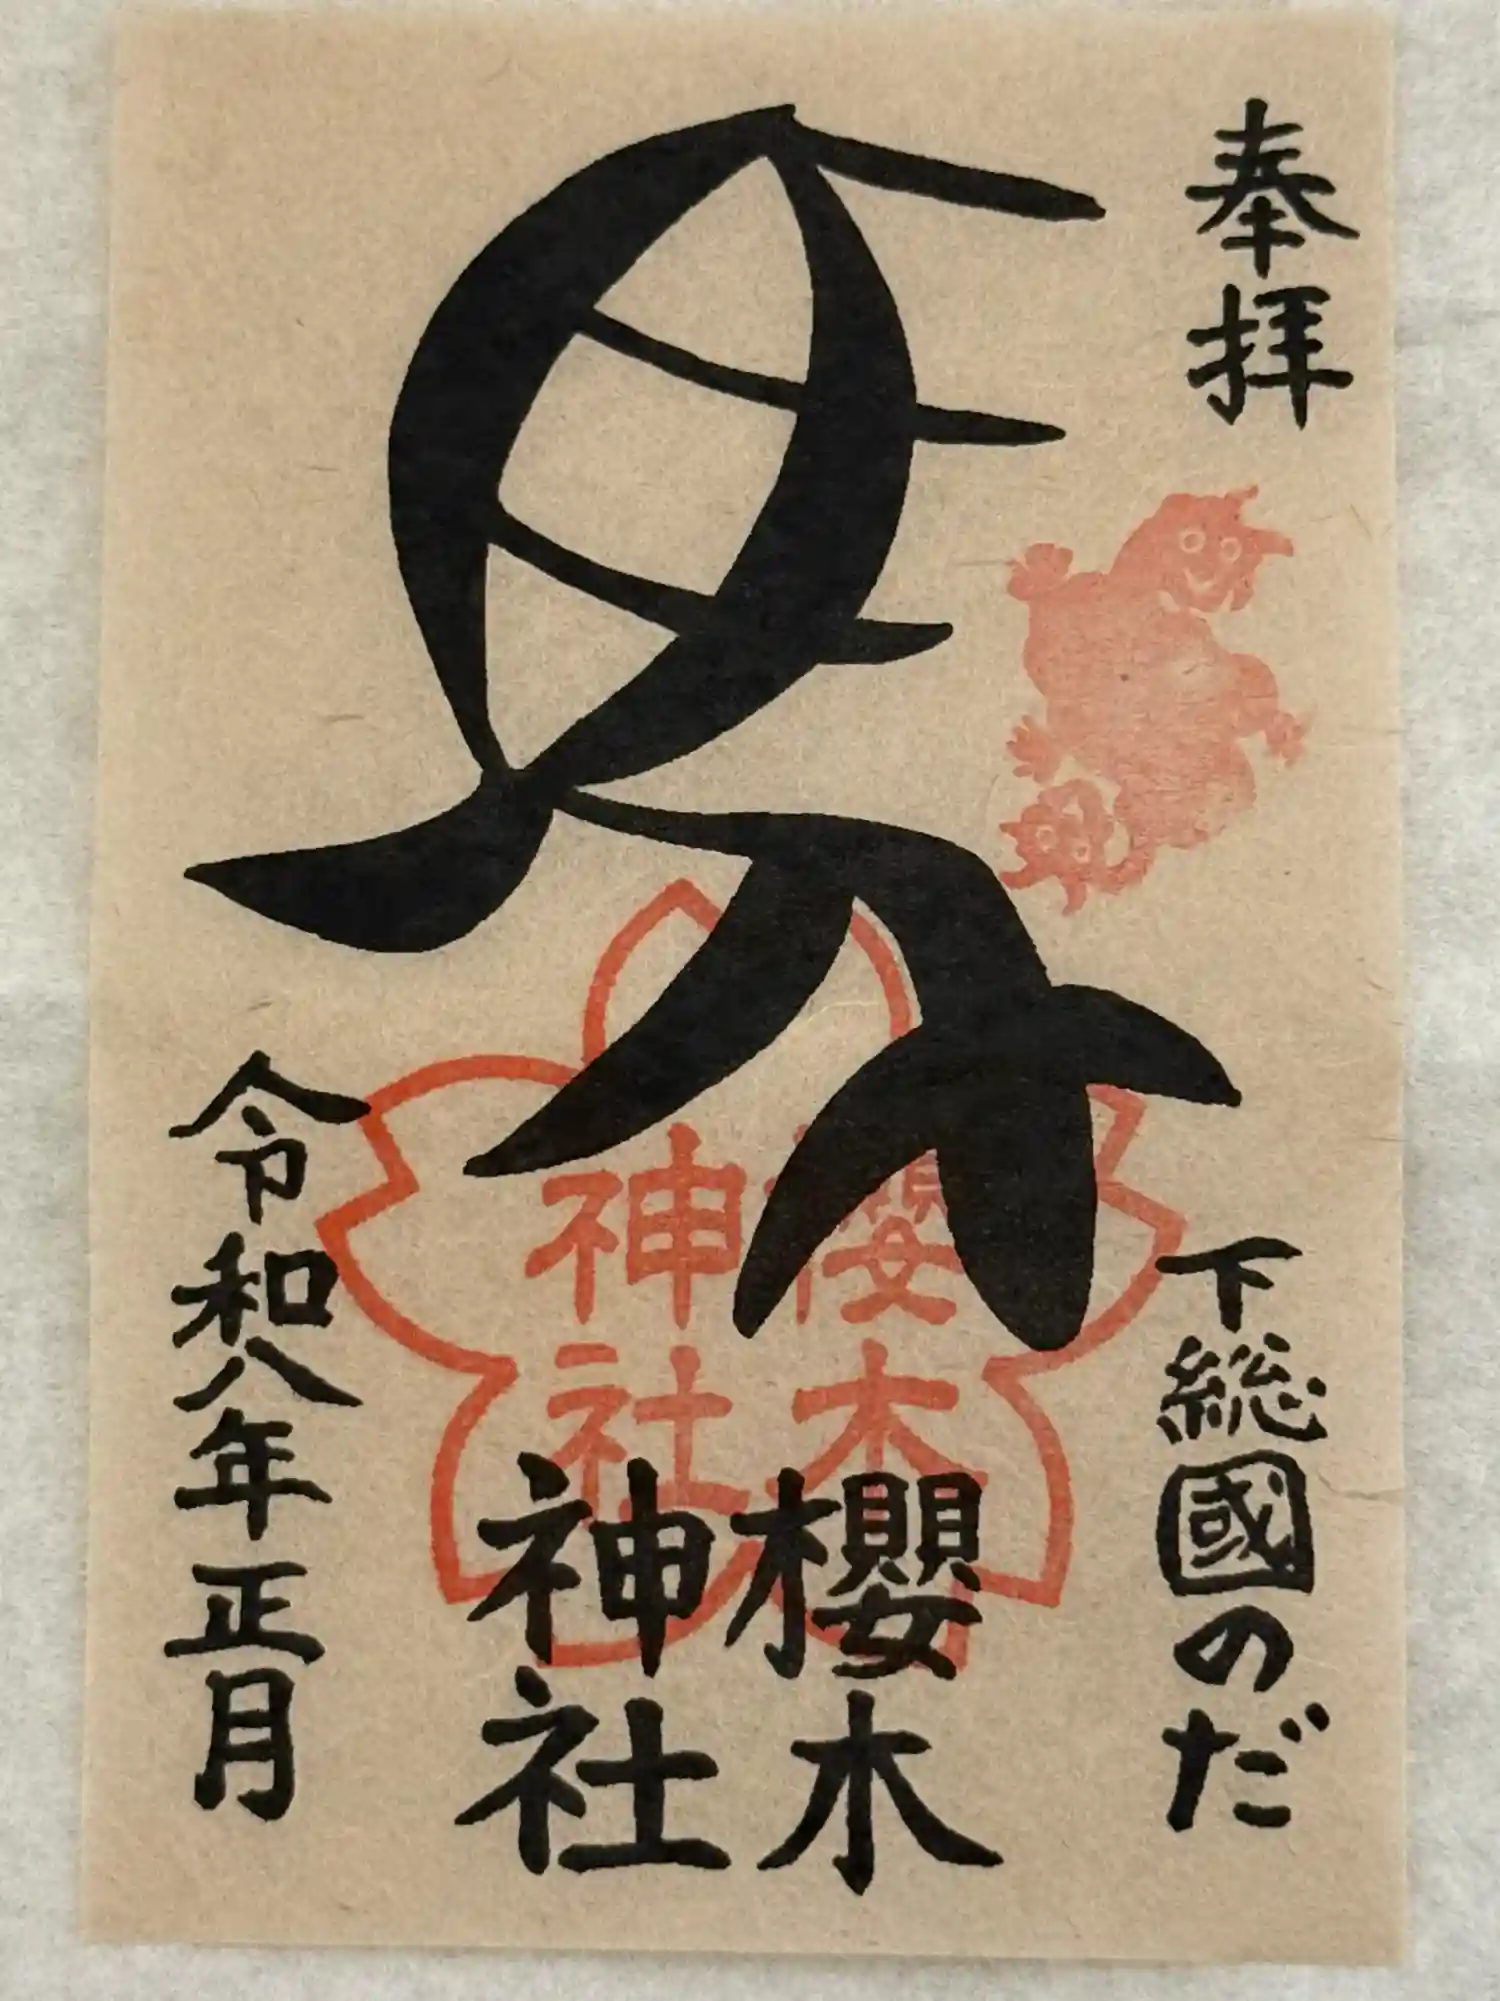 奉拝
下総國のだ
櫻木
神社
櫻木
神社
令和八年正月